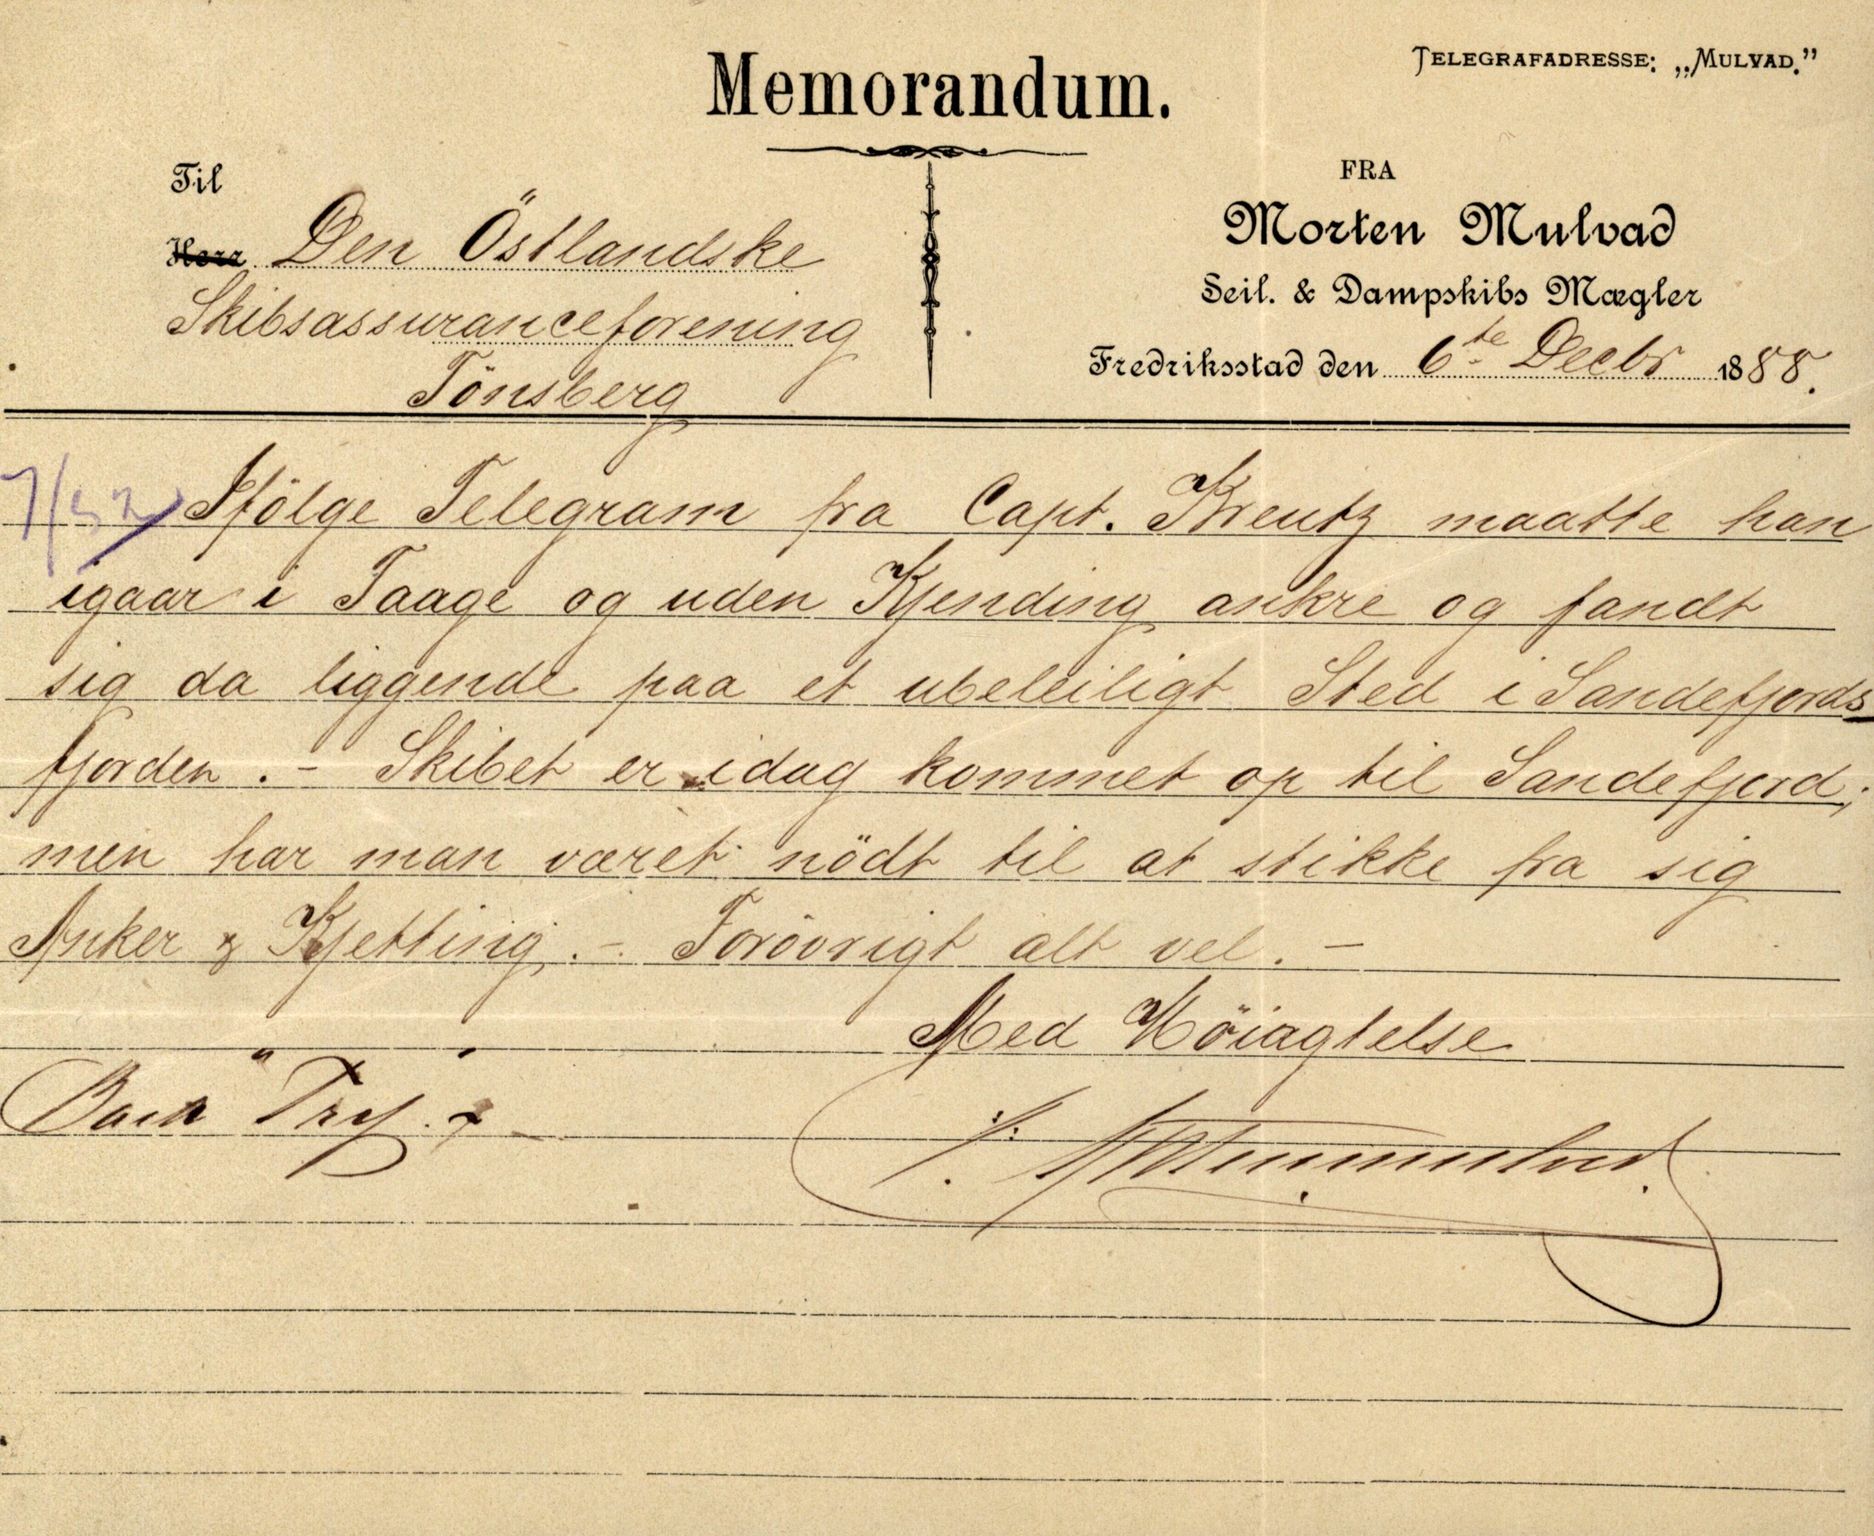 Memorandum.
TELEGRAFADRESSE: „MULVAD."
Til
Herr Den Östlandske
Skibsassuranceforening
Tönsberg
FRA
Morten Mulvad
Seil. & Dampskibs Mægler
Fredriksstad den 6te Decbr 1888.
7/12
Ifölge Telegram fra Capt. Kreutz maatte han
igaar i Taage og uden Kjending ankre og fandt
sig da liggende paa et ubeleiligt Sted i Sandefjords
fjorden. - Skibet er idag kommet op til Sandefjord;
men har man været nödt til at stikke fra sig
Anker & Kjetting. - Forövrigt alt vel. -
Med Höiagtelse
Bark "Try"